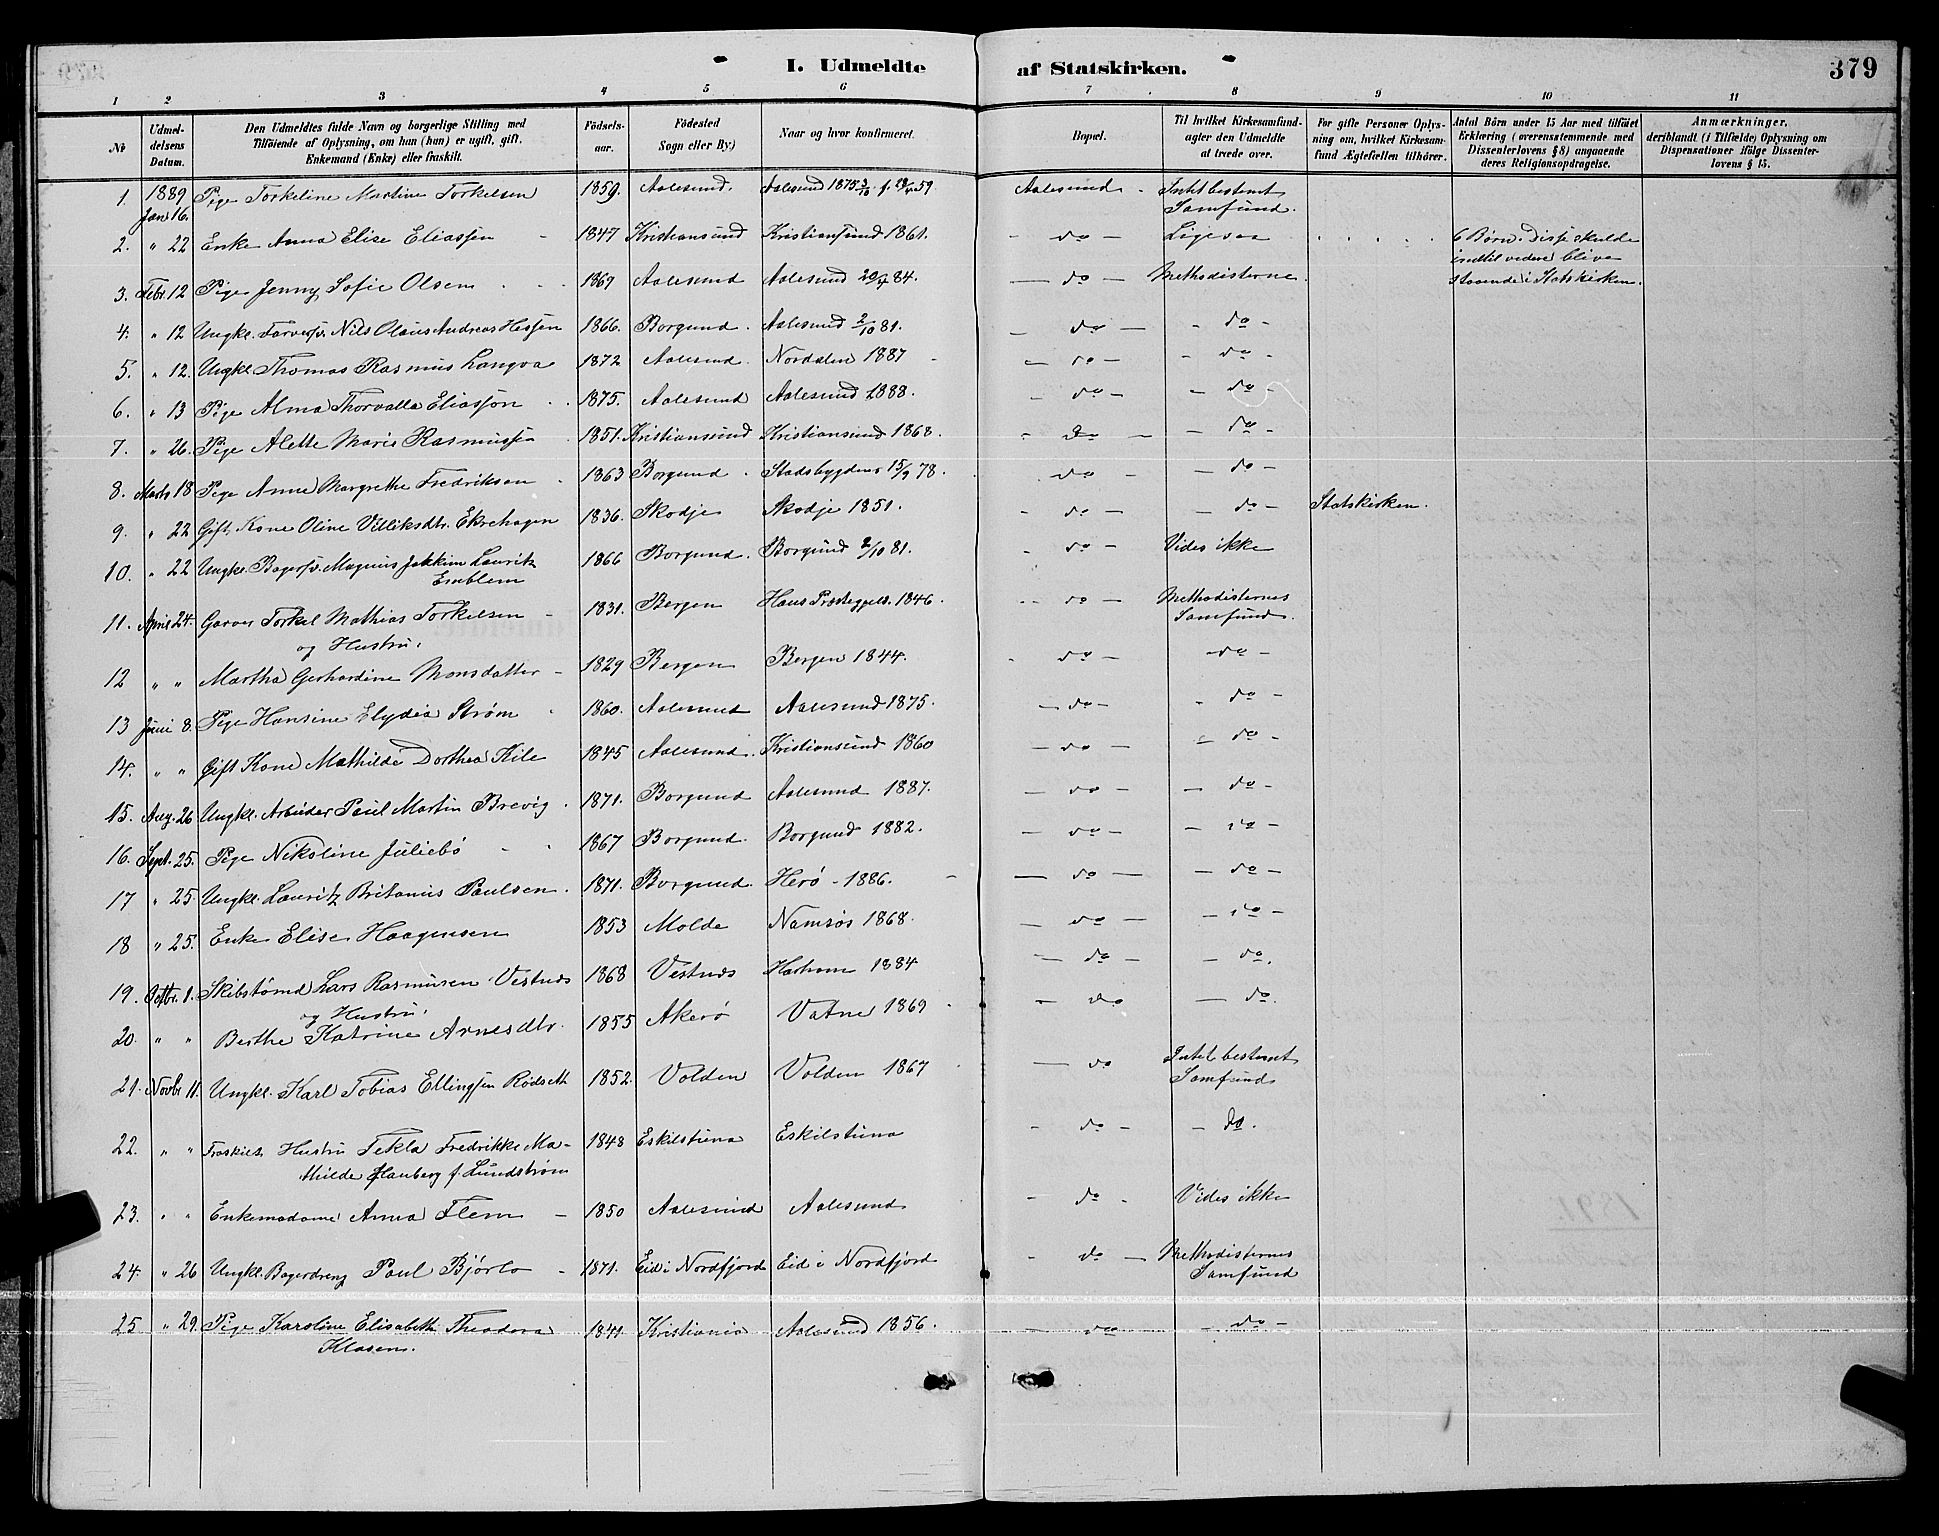 I. Udmeldte af Statskirken. 379
1 2 3 4 5 6 7 8 9 10 11
No
Udmeldelsens Datum.
Den Udmeldtes fulde Navn og borgerlige Stilling med Tilføiende af Oplysning, om han (hun) er ugift, gift, Enkemand (Enke) eller fraskilt.
Fødselsaar.
Fødested Sogn eller By)
Naar og hvor konfirmeret.
Bopæl.
Til hvilket Kirkesamfund- agter den Udmeldte at træde over.
For gifte Personer Oplysning om, hvilket Kirkesamfund Ægtefællen tilhører.
Antal Børn under 15 Aar med tilføiet Erklæring (overensstemmende med Dissenterlovens § 8) angaaende deres Religionsopdragelse.
Anmærkninger, deriblandt (i Tilfælde) Oplysning om Dispensationer ifølge Dissenterlovens § 15.
1. 1889 Jan 16. Pige Torkeline Martine Torkelsen 1859. Aalesund. Aalesund 1875 3/10 f. 59 Aalesund - Intet bestemt Samfund.
2. " 22 Enke Anna Elise Eliassen - 1847 Kristiansund Kristiansund 1861. - do - Ligesaa . . . . . 6 Børn. Disse skulde indtil videre blive staaende i Statskirken.
3. Febr. 12 Pige Jenny Sofie Olsen 1869 Aalesund Aalesund 20/4 84. - do - Methodisterne.
4. " 12 Ungkl. Farversv. Nils Olaus Andreas Hessen 1866. Borgund. Aalesund 2/10 81. - do - - do -
5. " 12. Ungkl. Thomas Rasmus Langva 1872 Aalesund. Norddalen 1887 - do - - do -
6. " 13 Pige Alma Thorvalla Eliassen 1875. Aalesund Aalesund 1888. - do - - do -
7. " 26. Pige Alette Marie Rasmussen 1851. Kristiansund Kristiansund 1868. - do - - do -
8. Marts 18 Pige Anne Margrethe Fredriksen 1863 Borgund. Stadsbygden 15/9 78. do - - do -
9. " 22 Gift Kone Oline Villiksdtr. Ekrehagen 1836. Skodje Skodje 1851. - do - - do - Statskirken.
10. " 22 Ungkl. Bagersv. Magnus Jokkim Lauritz Emblem 1866 Borgund. Borgund 2/10 81. - do - Vides ikke
11. April 24. Garver Torkel Mathias Torkelsen - og Hustru. 1831. Bergen Haus Præstegjeld. 1846. - do - Methodisternes Samfund.
12 " " Martha Gerhardine Monsdatter - 1829 Bergen Bergen 1844. - do - - do -
13 Juni 8. Pige Hansine Elydia Strøm 1860. Aalesund Aalesund 1875. - do - - do -
14. " " Gift Kone Mathilde Dorthea Kile 1845 Aalesund. Kristiansund 1860 - do - - do -
15. Aug. 26 Ungkl. Arbeider Paul Martin Brevig. 1871. Borgund Aalesund 1887. - do - - do -
16. Sept. 25. Pige Nikoline Juliebø 1867 Borgund. Borgund 1882. - do - - do -
17 " 25 Ungkl. Lauritz Britanus Paulsen. 1871. Borgund. Herø - 1886. - do - - do -
18 " 25. Enke Elise Haagensen 1853 Molde Namsos 1868. - do - - do -
19. Octbr. 1. Skibstømd Lars Rasmusen Vestnes og Hustru. 1868 Vestnes Harham 1884 - do - - do.
20. " " Berthe Katrine Arnesdtr. 1855 Akerø Vatne 1869 - do - do.
21. Novbr. 11. Ungkl. Karl Tobias Ellingsen Rødseth 1852. Volden Volden 1867 - do Intet bestemt Samfund
22. " " Fraskilt Hustru Tekla Fredrikke Mathilde Hauberg f. Lundstrøm 1848 Eskilstuna Eskilstuna - do - - do.
23. " " Enkemadame Anna Flem - 1850 Aalesund Aalesund - do - Vides ikke
24. " 26 Ungkl. Bagerdreng Paul Bjørlo - 1871. Eid i Nordfjord Eid i Nordfjord - do - Methodisternes Samfund
25 " 29. Pige Karoline Elisabeth Theodora Klasen. 1841 Kristiania Aalesund 1856. - do - do -